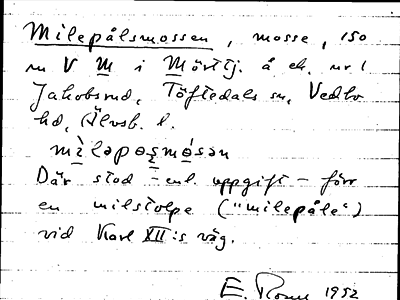 Milepålsmossen, mosse, 150
m V M i Mörttj. å ek. nr 1
Jakobsrud, Töftedals sn, Vedbo
hd, Älvsb. l.
mìləpos̱mósən
Där stod – enl. uppgift – förr
en milstolpe ("milepåle")
vid Karl XII:s väg.
E. 1952